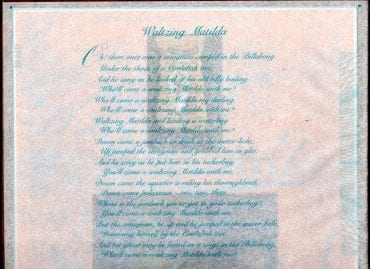 Waltzing Matilda
Oh! there once was a swagman camped in the Billabong
Under the shade of a Coolabah tree
And he sang as he looked at his old billy boiling
Who'll come a-waltzing Matilda with me?
Who'll come a-waltzing Matilda my darling
Who'll come a-waltzing Matilda with me?
Waltzing Matilda and leading a waterbag
Who'll come a-waltzing Matilda with me?
Down came a jumbuck to drink at the water-hole,
Up jumped the swagman and grabbed him in glee,
And he sang as he put him in his tuckerbag,
You'll come a-waltzing Matilda with me.
Down came the squatter a-riding his thoroughbred,
Down came policemen - one, two, three.
Whose is the jumbuck you've got in your tuckerbag
You'll come a-waltzing Matilda with me.
But the swagman, he up and he jumped in the water-hole,
Drowning himself by the Coolabah tree,
And his ghost may be heard as it sings in the Billabong,
Who'll come a-waltzing Matilda with me.